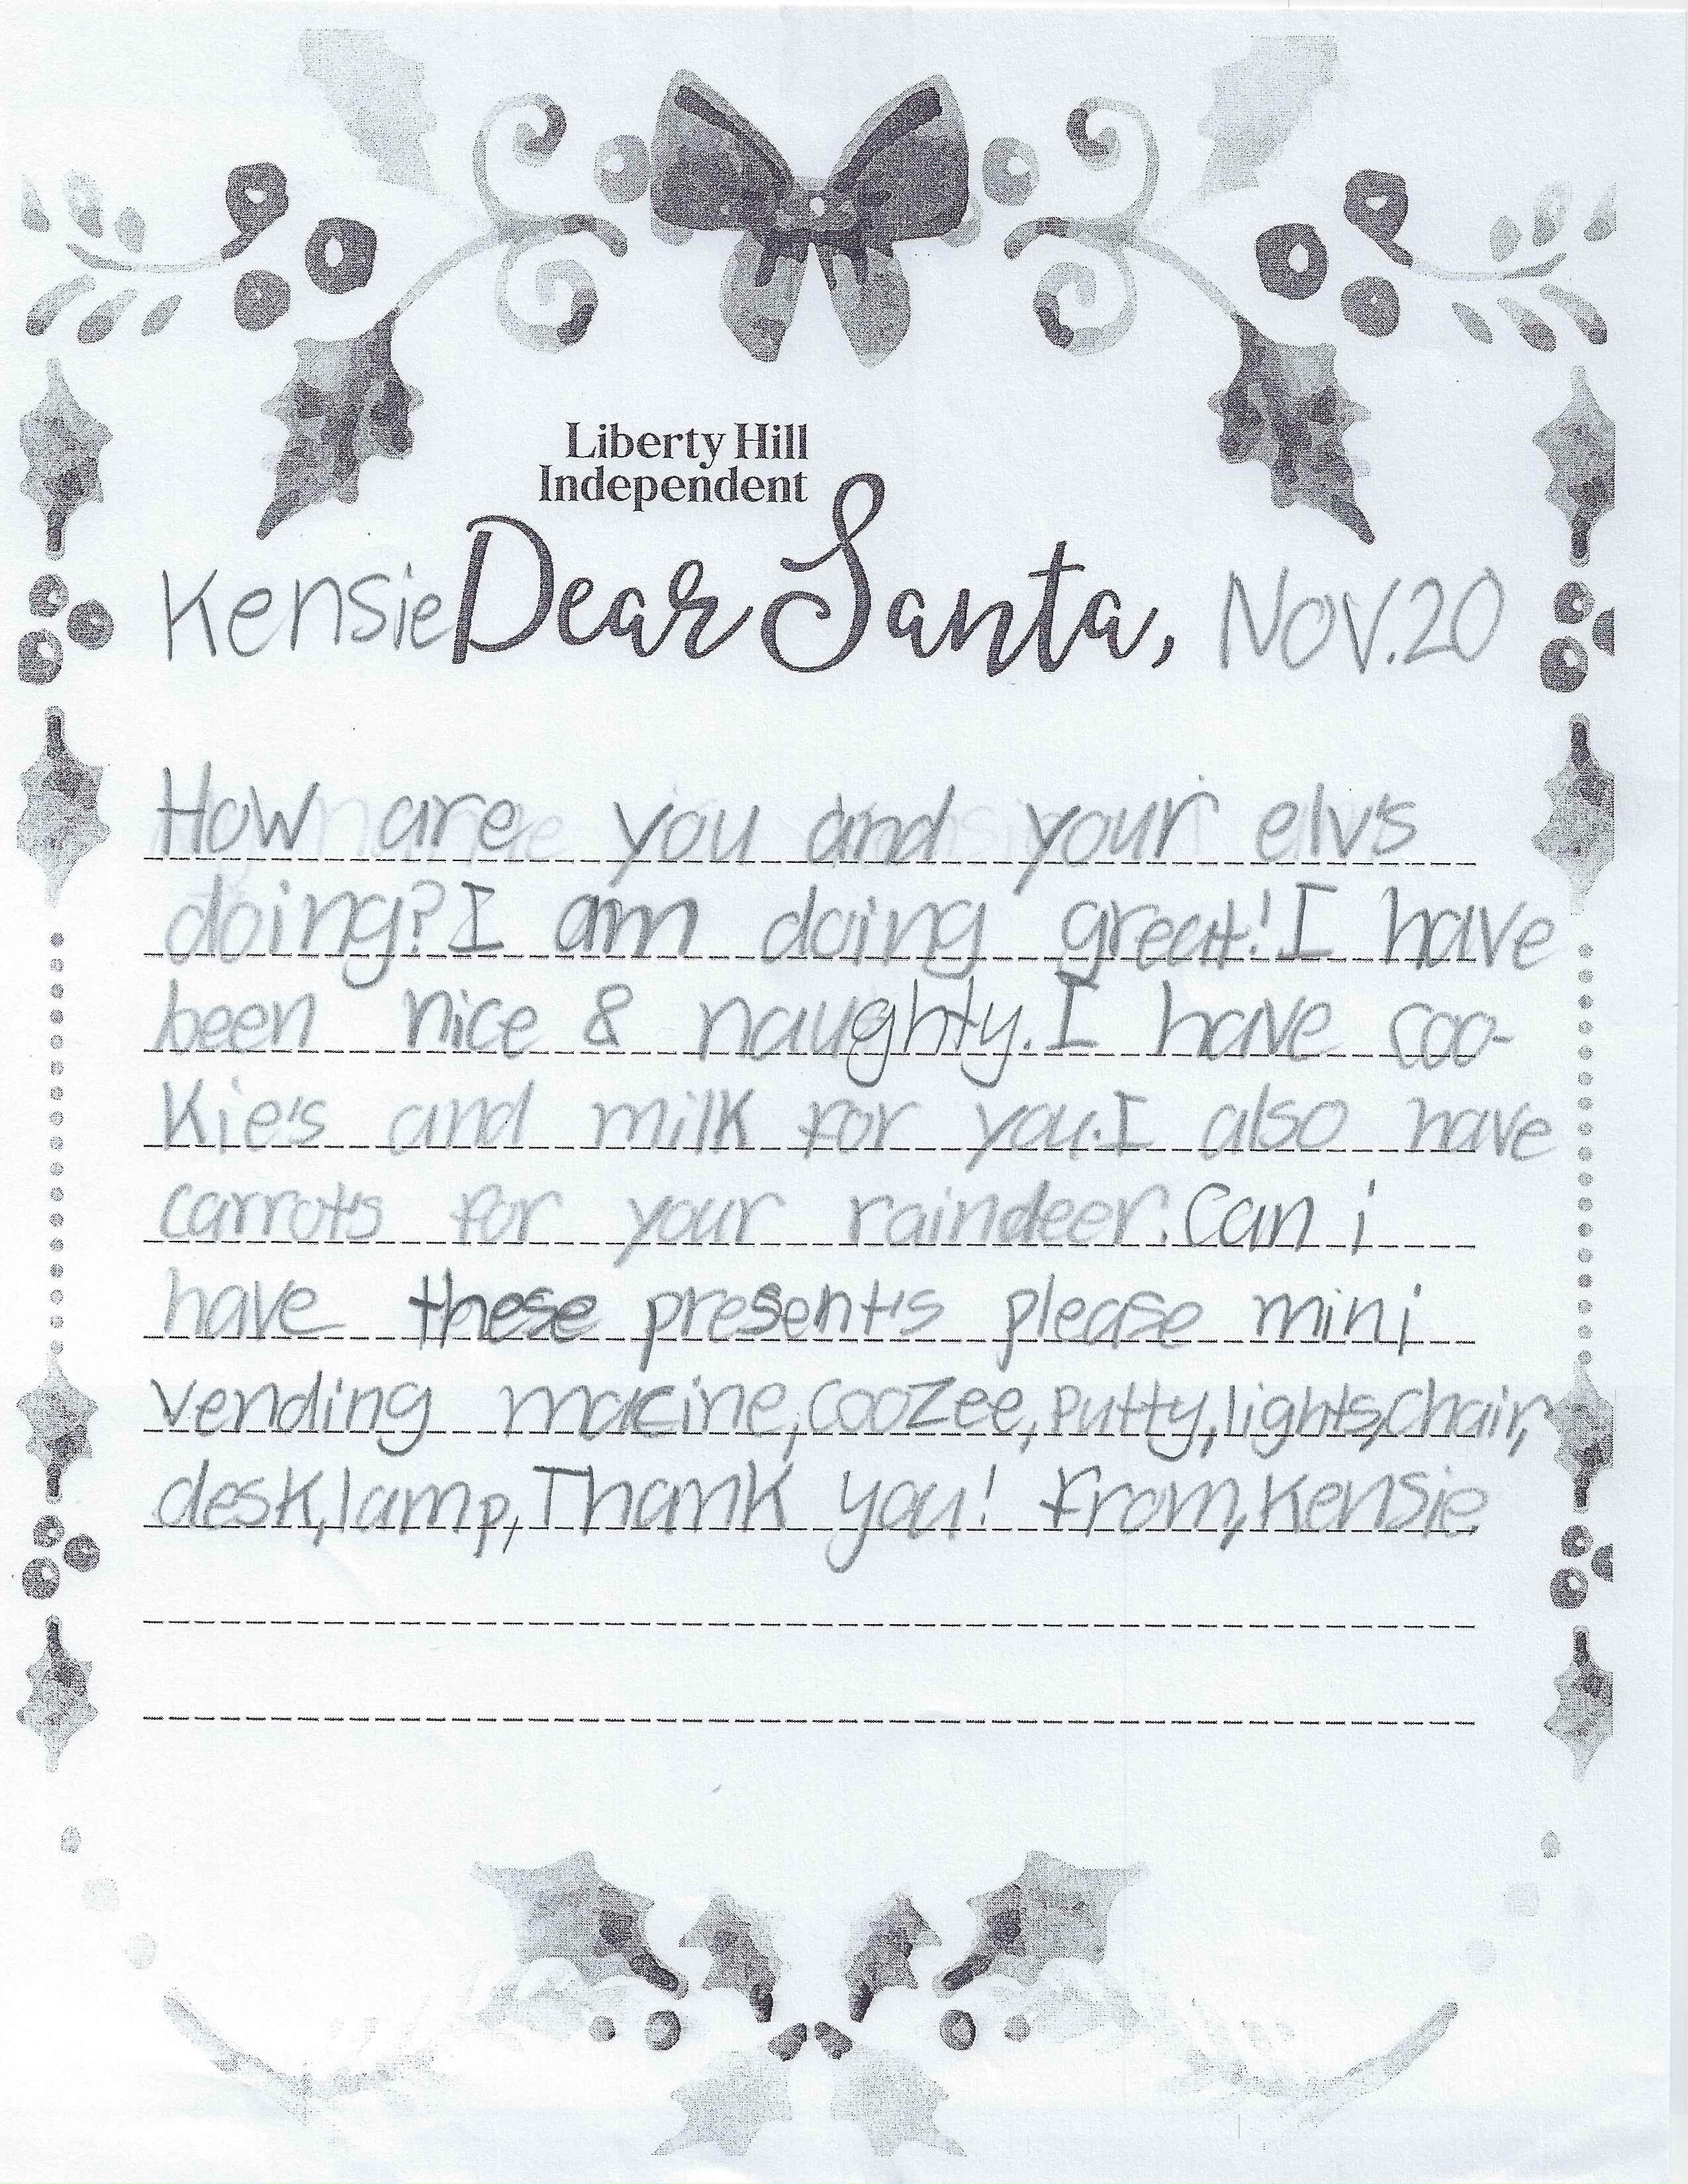 Liberty Hill
Independent
Kensie Dear Santa, Nov.20
How are you and your elvs
doing? I am doing great! I have
been nice & naughty. I have coo-
kie's and milk for you. I also have
carrots for your raindeer. Can i
have these presents please mini
vending macine, coozee, putty, lights, chair,
desk, lamp, Thank you! From, Kensie